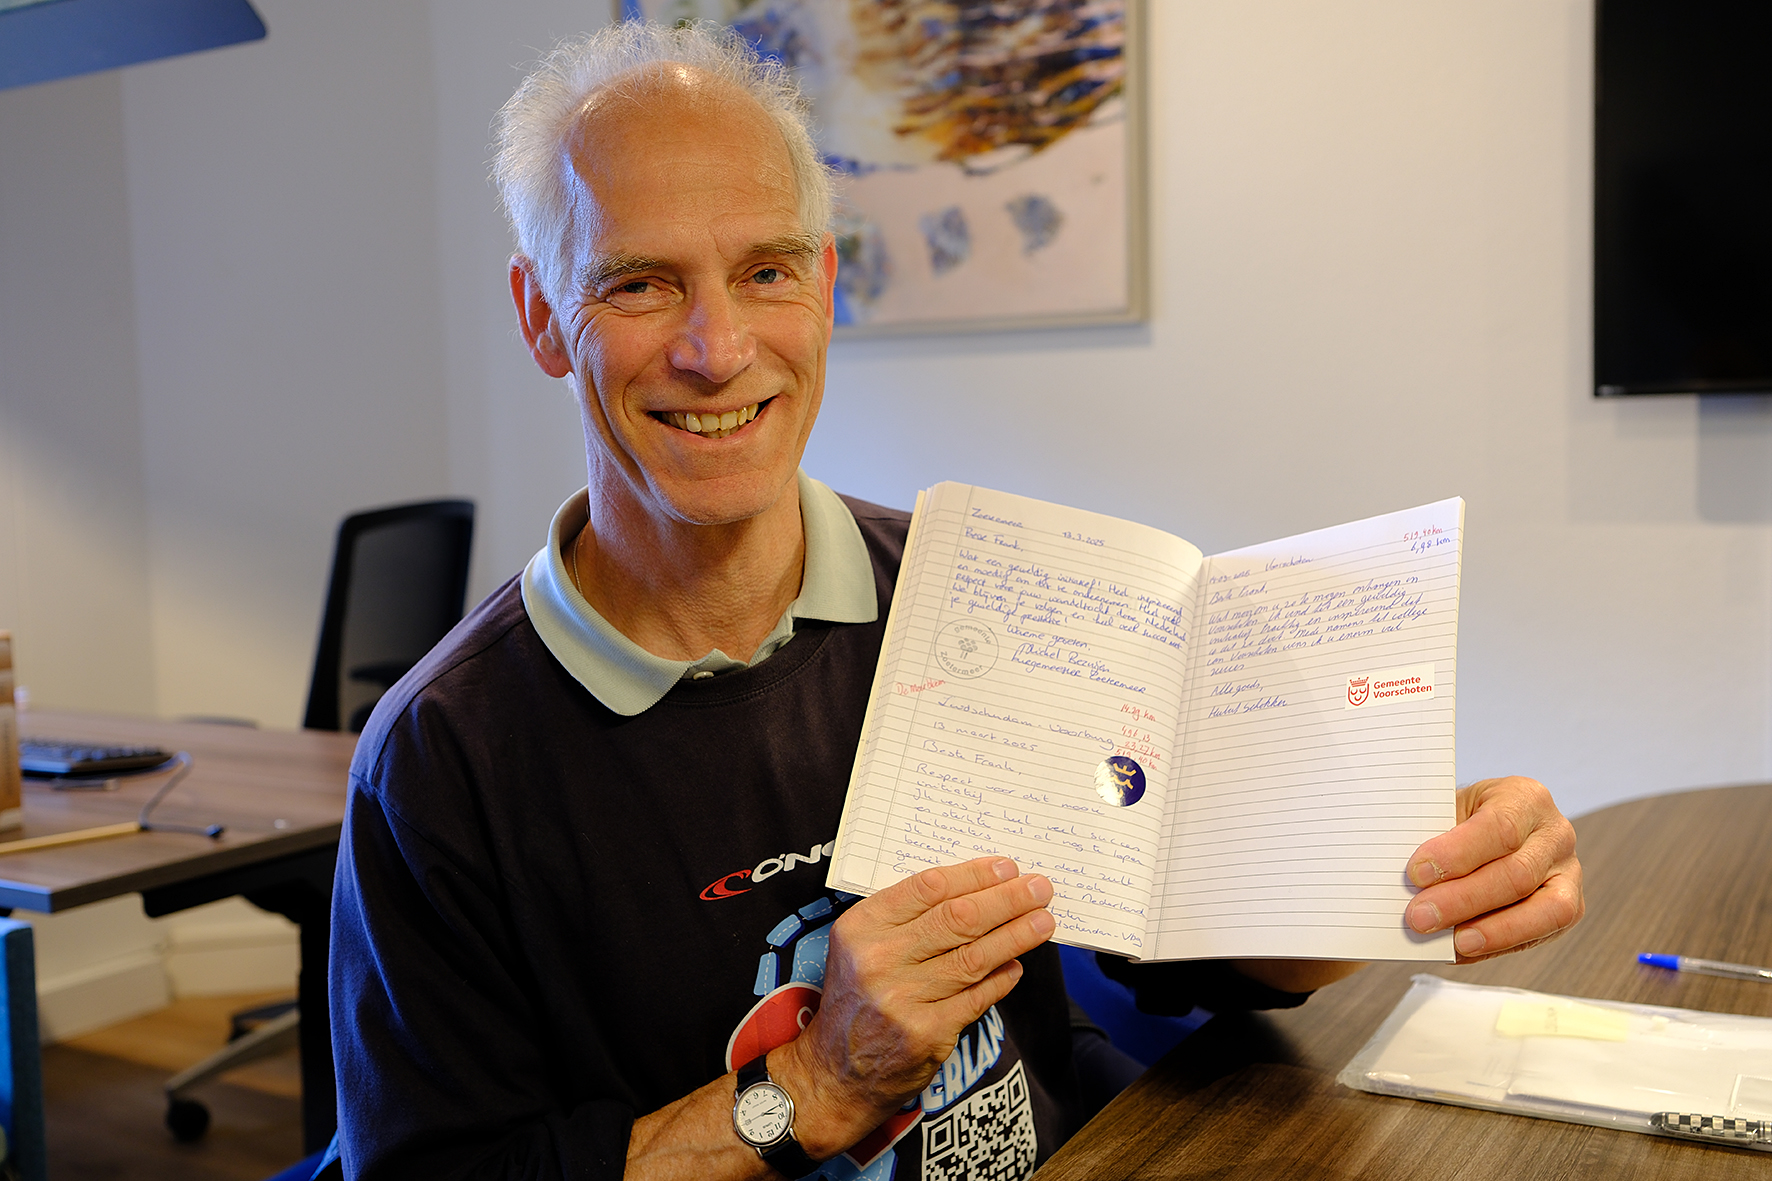 Zoetermeer 13.3.2025
Beste Frank,
Wat een geweldig initiatief! Heel inspirerend
en moedig om dit te ondernemen. Heel veel
respect voor jouw wandeltocht door Nederland.
We blijven je volgen en heel veel succes met
je geweldige prestatie!
Warme groeten,
Michel Bezuijen
burgemeester Zoetermeer
Gemeente
Zoetermeer
14.29 km
Leidschendam-Voorburg
496,13
23,27 km
519,40 km
13 maart 2025
Beste Frank,
Respect voor dit mooie
initiatief
Ik wens je heel veel succes
en sterkte met al nog te lopen
kilometers
Ik hoop dat je je doel zult
bereiken
geniet
Nederland
519,40 km
6,98 km
Voorschoten
Beste Frank,
Wat mogen u zo te mogen ontvangen in
Voorschoten. Ik vind het een geweldig
initiatief. Prachtig en inspirerend dat
u dit zo doet. Mede namens het college
van Voorschoten wens ik u enorm veel
succes
Alle goeds,
Gemeente
Voorschoten
O'NE
ERLAN